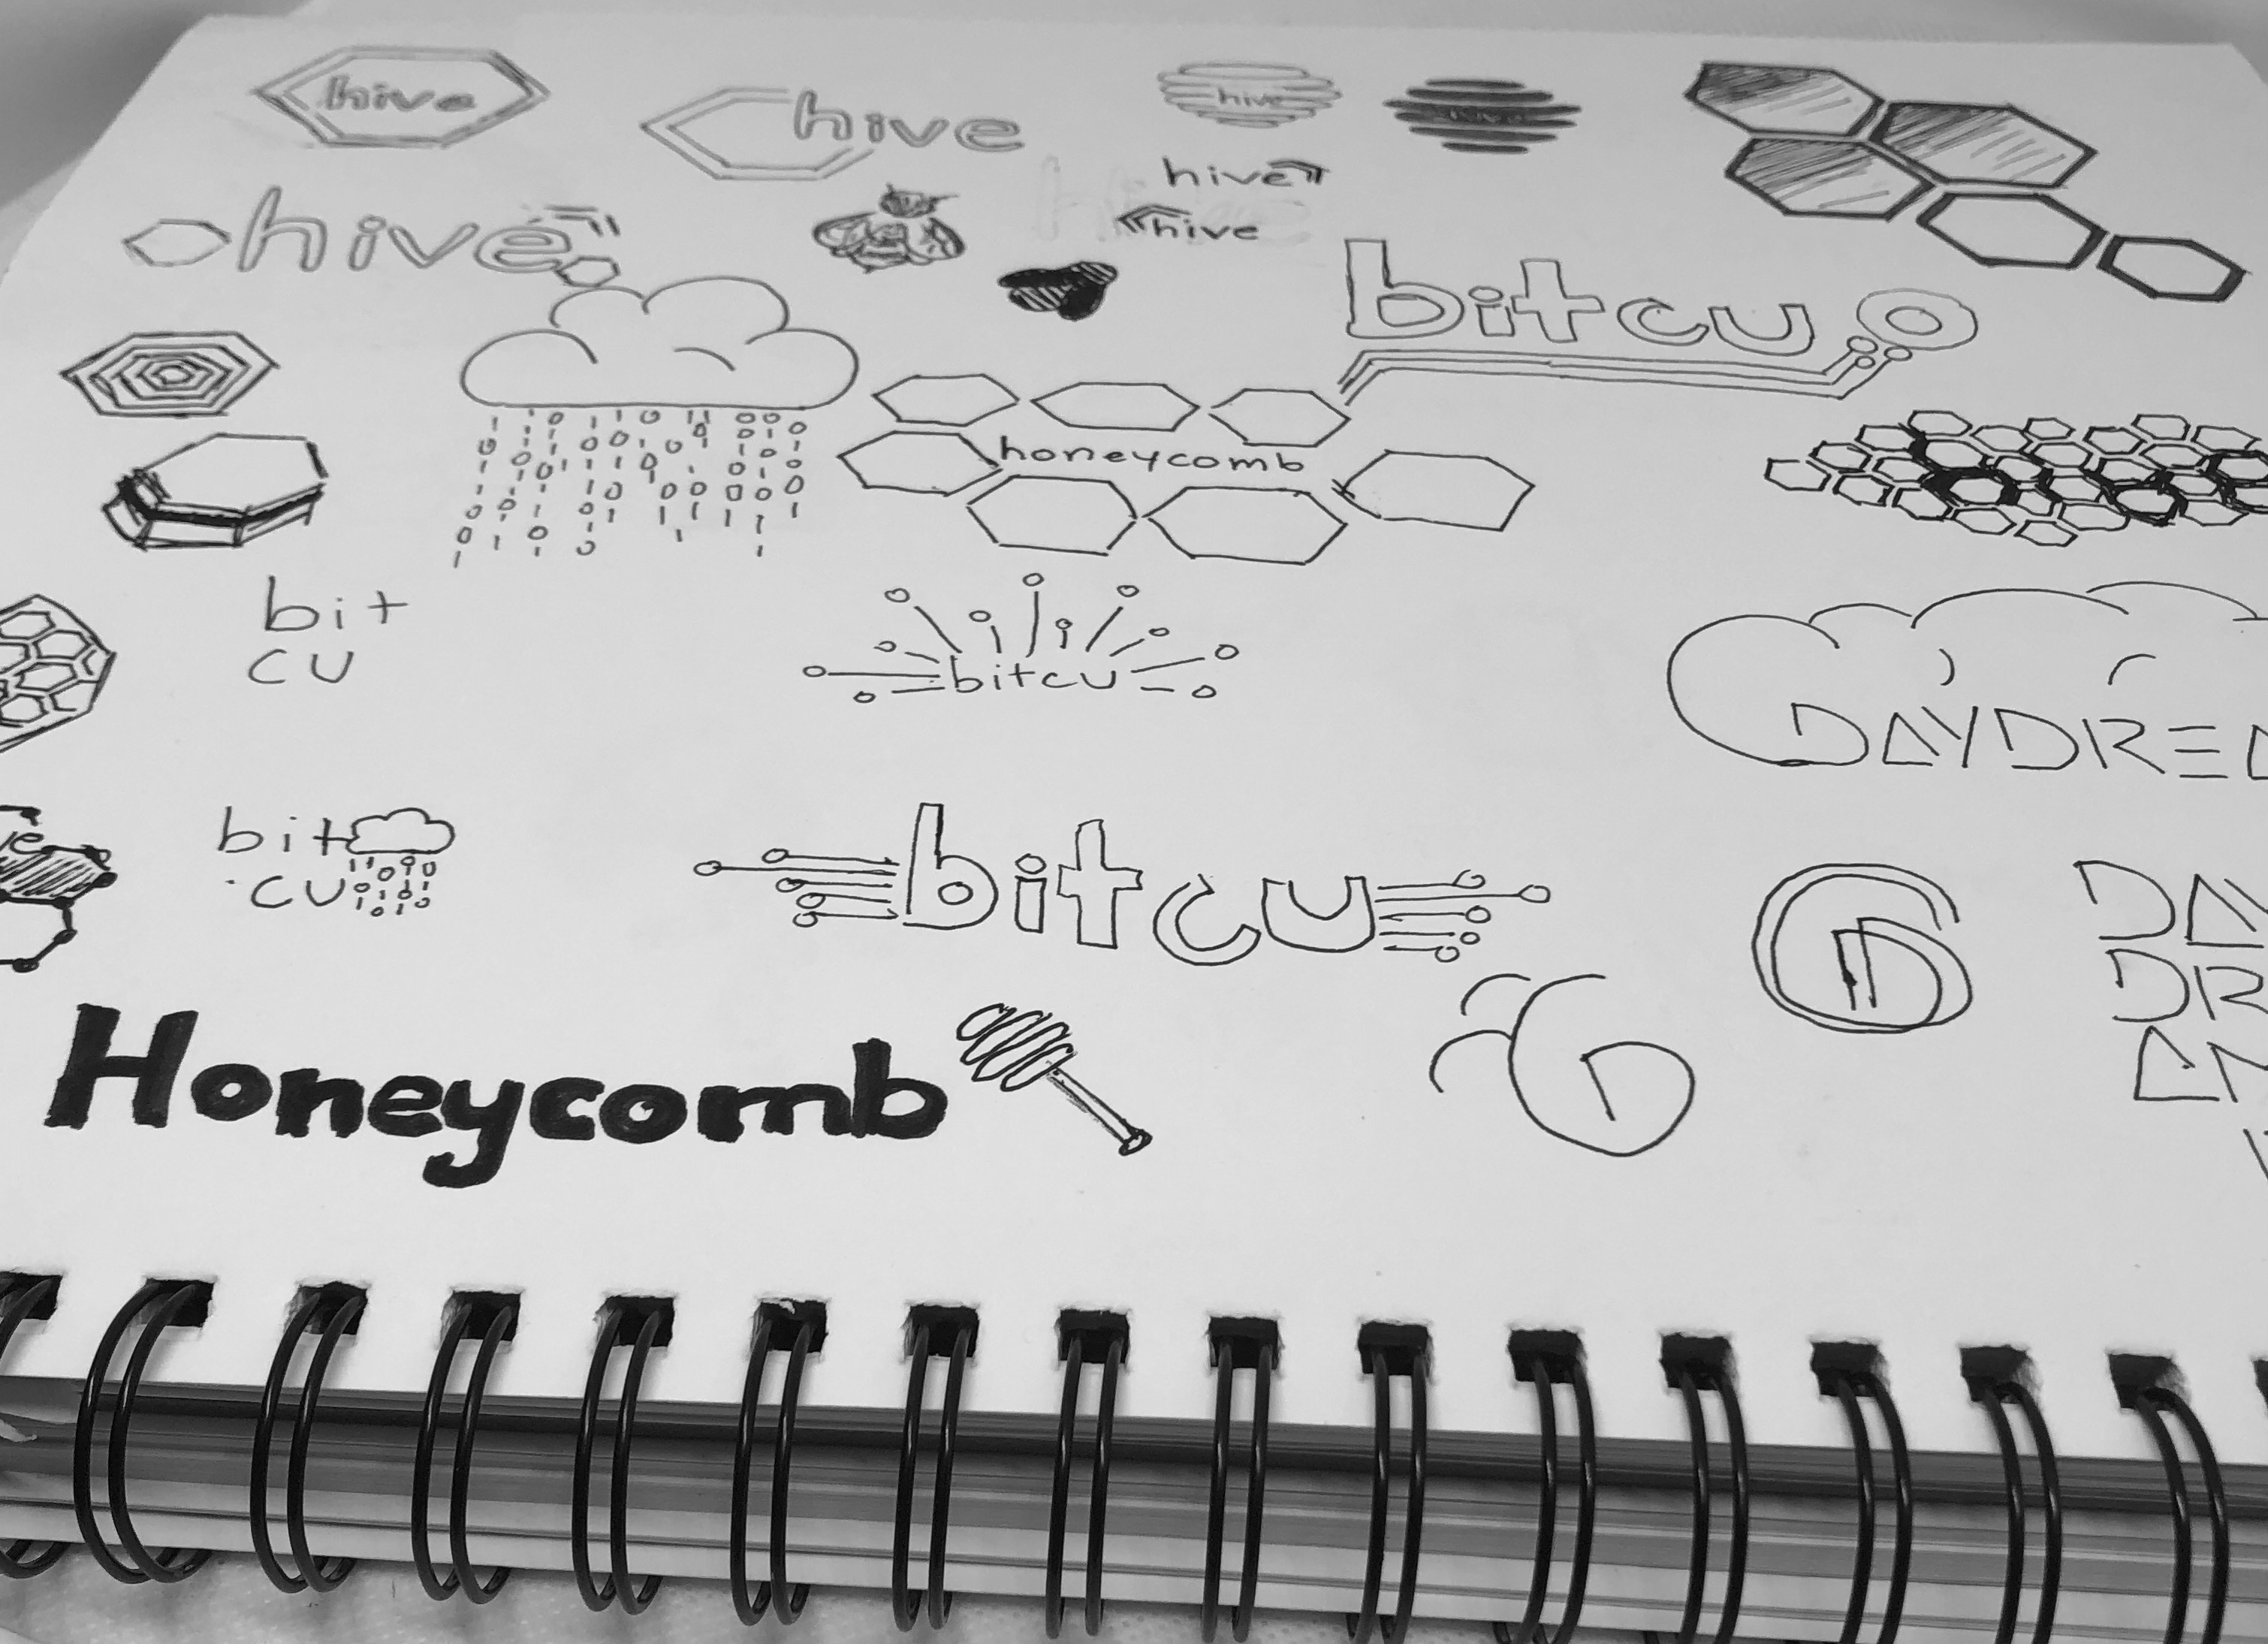 hive
hive
hive
hive
hive
hive
hive
bitcu
honeycomb
bit
cu
bitcu
DAYDREA
bit
cu
bitcu
DAY
DR
Honeycomb